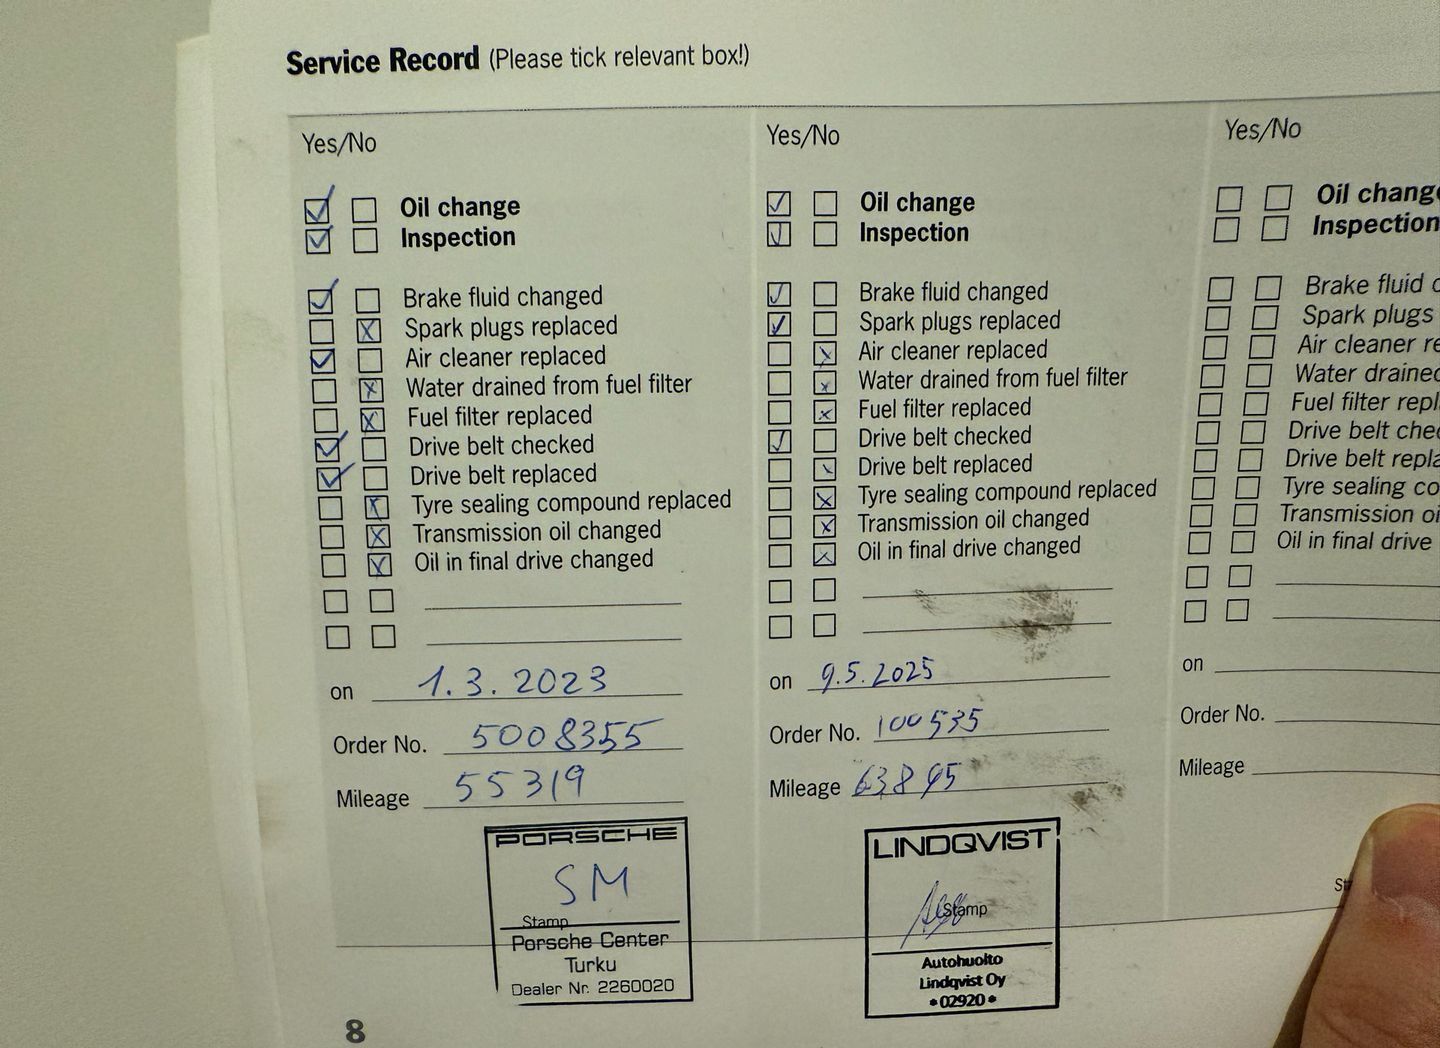 Service Record (Please tick relevant box!)
Yes/No
Oil change
Inspection
Brake fluid changed
Spark plugs replaced
Air cleaner replaced
Water drained from fuel filter
Fuel filter replaced
Drive belt checked
Drive belt replaced
Tyre sealing compound replaced
Transmission oil changed
Oil in final drive changed
on 1.3.2023
Order No. 5008355
Mileage 55319
PORSCHE
SM
Stamp
Porsche Center
Turku
Dealer Nr. 2260020
Yes/No
Oil change
Inspection
Brake fluid changed
Spark plugs replaced
Air cleaner replaced
Water drained from fuel filter
Fuel filter replaced
Drive belt checked
Drive belt replaced
Tyre sealing compound replaced
Transmission oil changed
Oil in final drive changed
on 9.5.2025
Order No. 100535
Mileage
LINDQVIST
Stamp
Autohuolto
Lindqvist Oy
• 02920 •
Yes/No
Oil change
Inspection
Brake fluid
Spark plugs
Air cleaner
Water drained
Fuel filter
Drive belt
Drive belt
Tyre sealing
Transmission
Oil in final drive
on
Order No.
Mileage
8